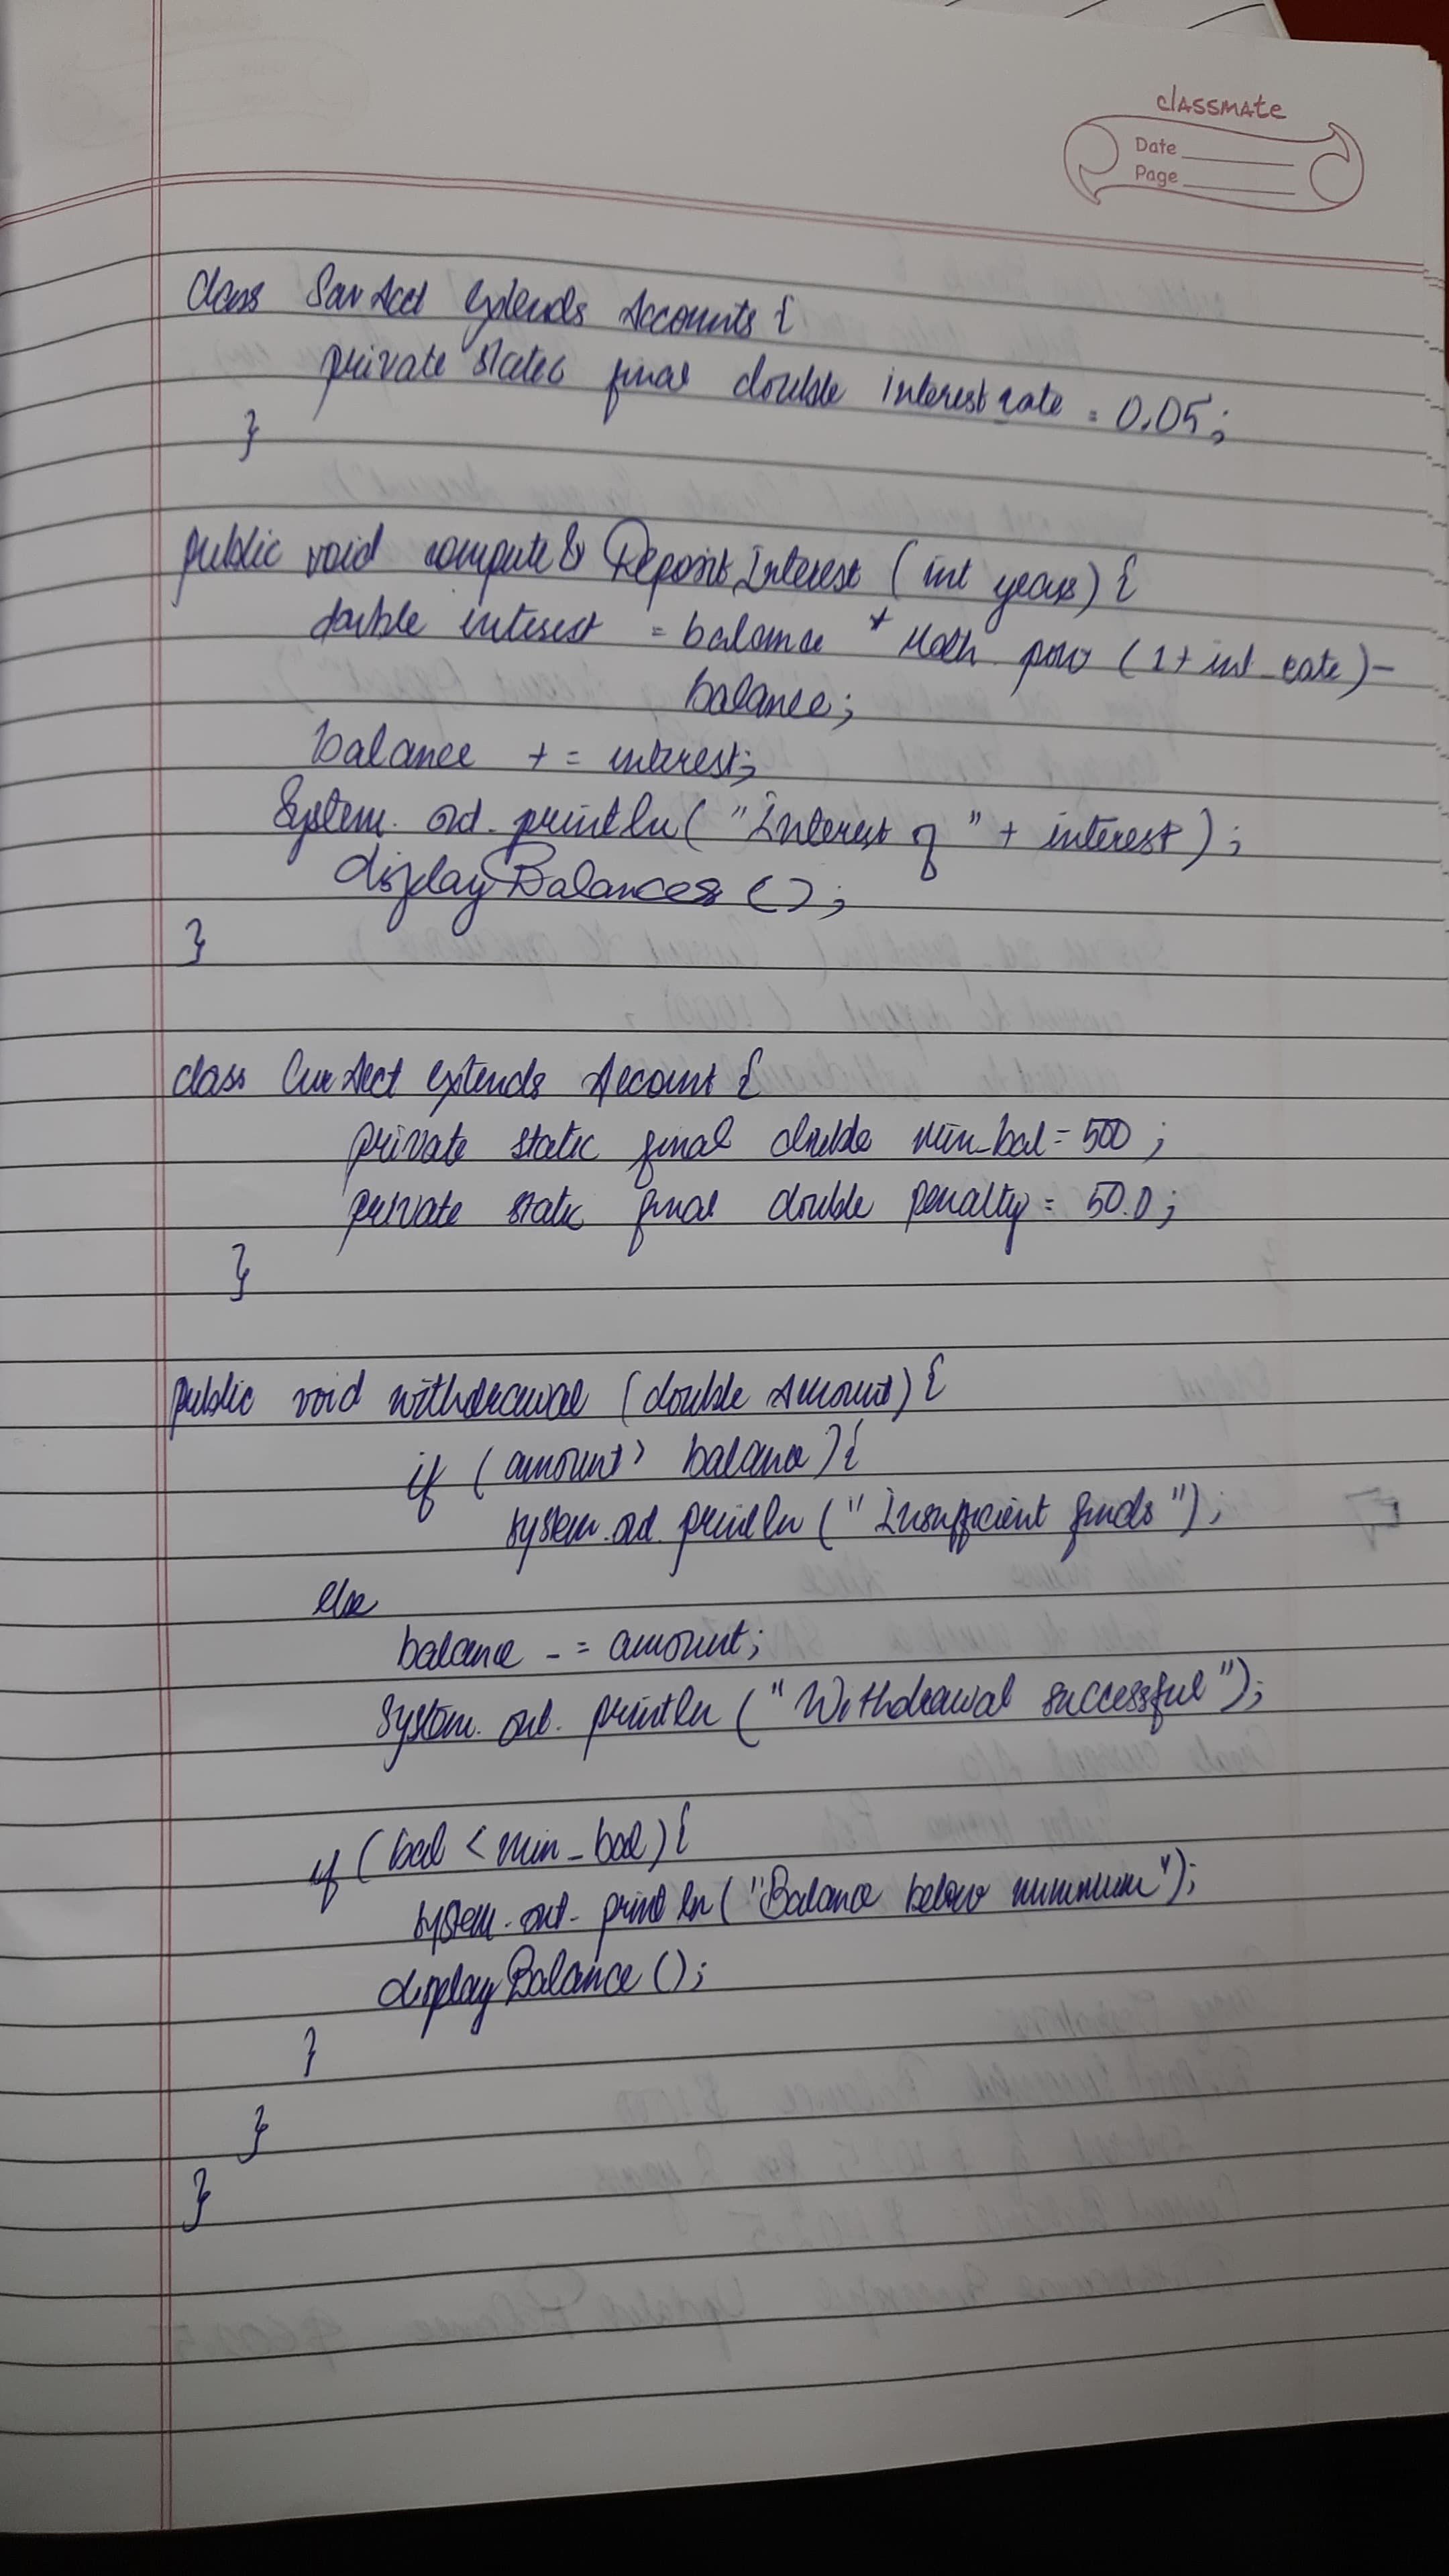 classmate
Date
Page
class SavAcct extends Accounts {
private static final double interest rate = 0.05;
}
public void compute & Deposit Interest (int years) {
double interest = balance * Math. pow (1 + int_rate) -
balance;
balance += interest;
System. out. println( "Interest of " + interest);
displayBalances ();
}
class CurAcct extends Account {
private static final double min_bal = 500 ;
private static final double penalty = 50.0 ;
}
public void withdrawal (double Amount) {
if (amount > balance) {
system.out.println (" Insufficient funds ");
else
balance -= amount;
System. out. println ("Withdrawal successful");
if (bal < min_bal) {
system.out. println ("Balance below minimum");
displayBalance ();
}
}
}